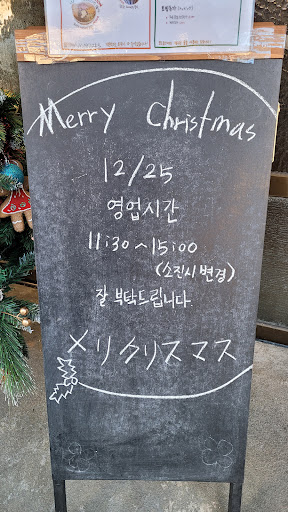 Merry Christmas
12/25
영업시간
11:30~15:00
(소진시 변경)
잘 부탁드립니다.
メリクリスマス